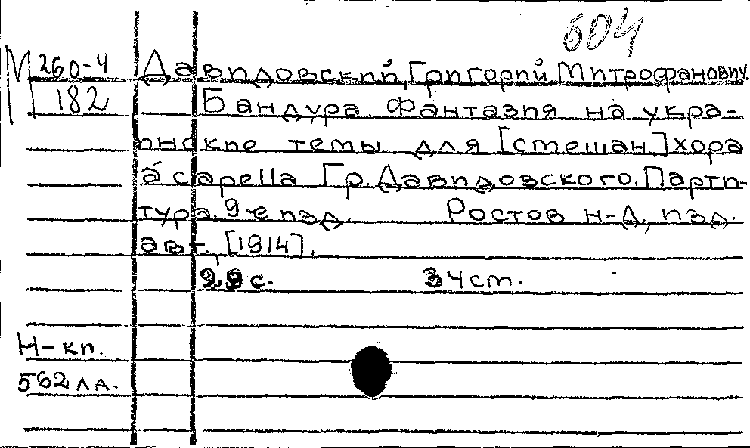 604
М 260-4
182
Давидовский, Григорий Митрофанович
Бандура. Фантазия на укра-
инские темы для [смешан.] хора
a capella Гр. Давидовского. Парти-
тура. 9-е изд. Ростов н-Д, изд.
авт., [1914].
29 с. 34 ст.
Н-кп.
562 лд.